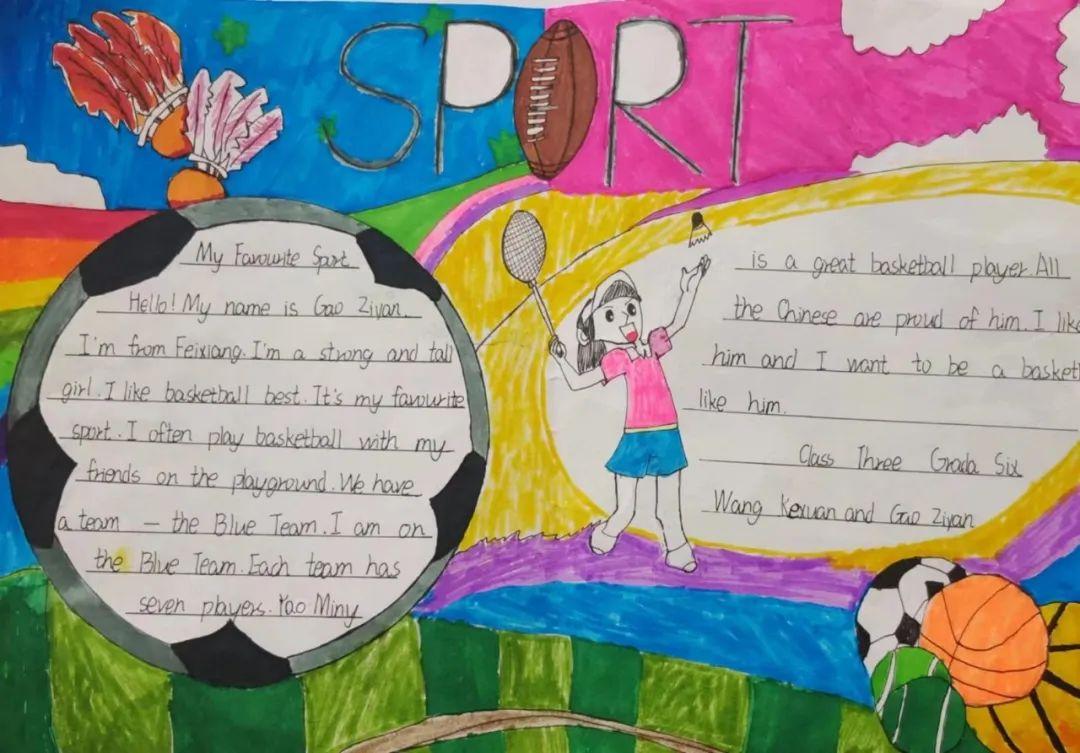 SPORT
My Favourite Sport
Hello! My name is Gao Ziyan.
I'm from Feixiang. I'm a strong and tall
girl. I like basketball best. It's my favourite
sport. I often play basketball with my
friends on the playground. We have
a team — the Blue Team. I am on
the Blue Team. Each team has
seven players. Yao Miny
is a great basketball player. All
the Chinese are proud of him. I like
him and I want to be a basket
like him.
Class Three Grada Six
Wang Kexuan and Gao Ziyan